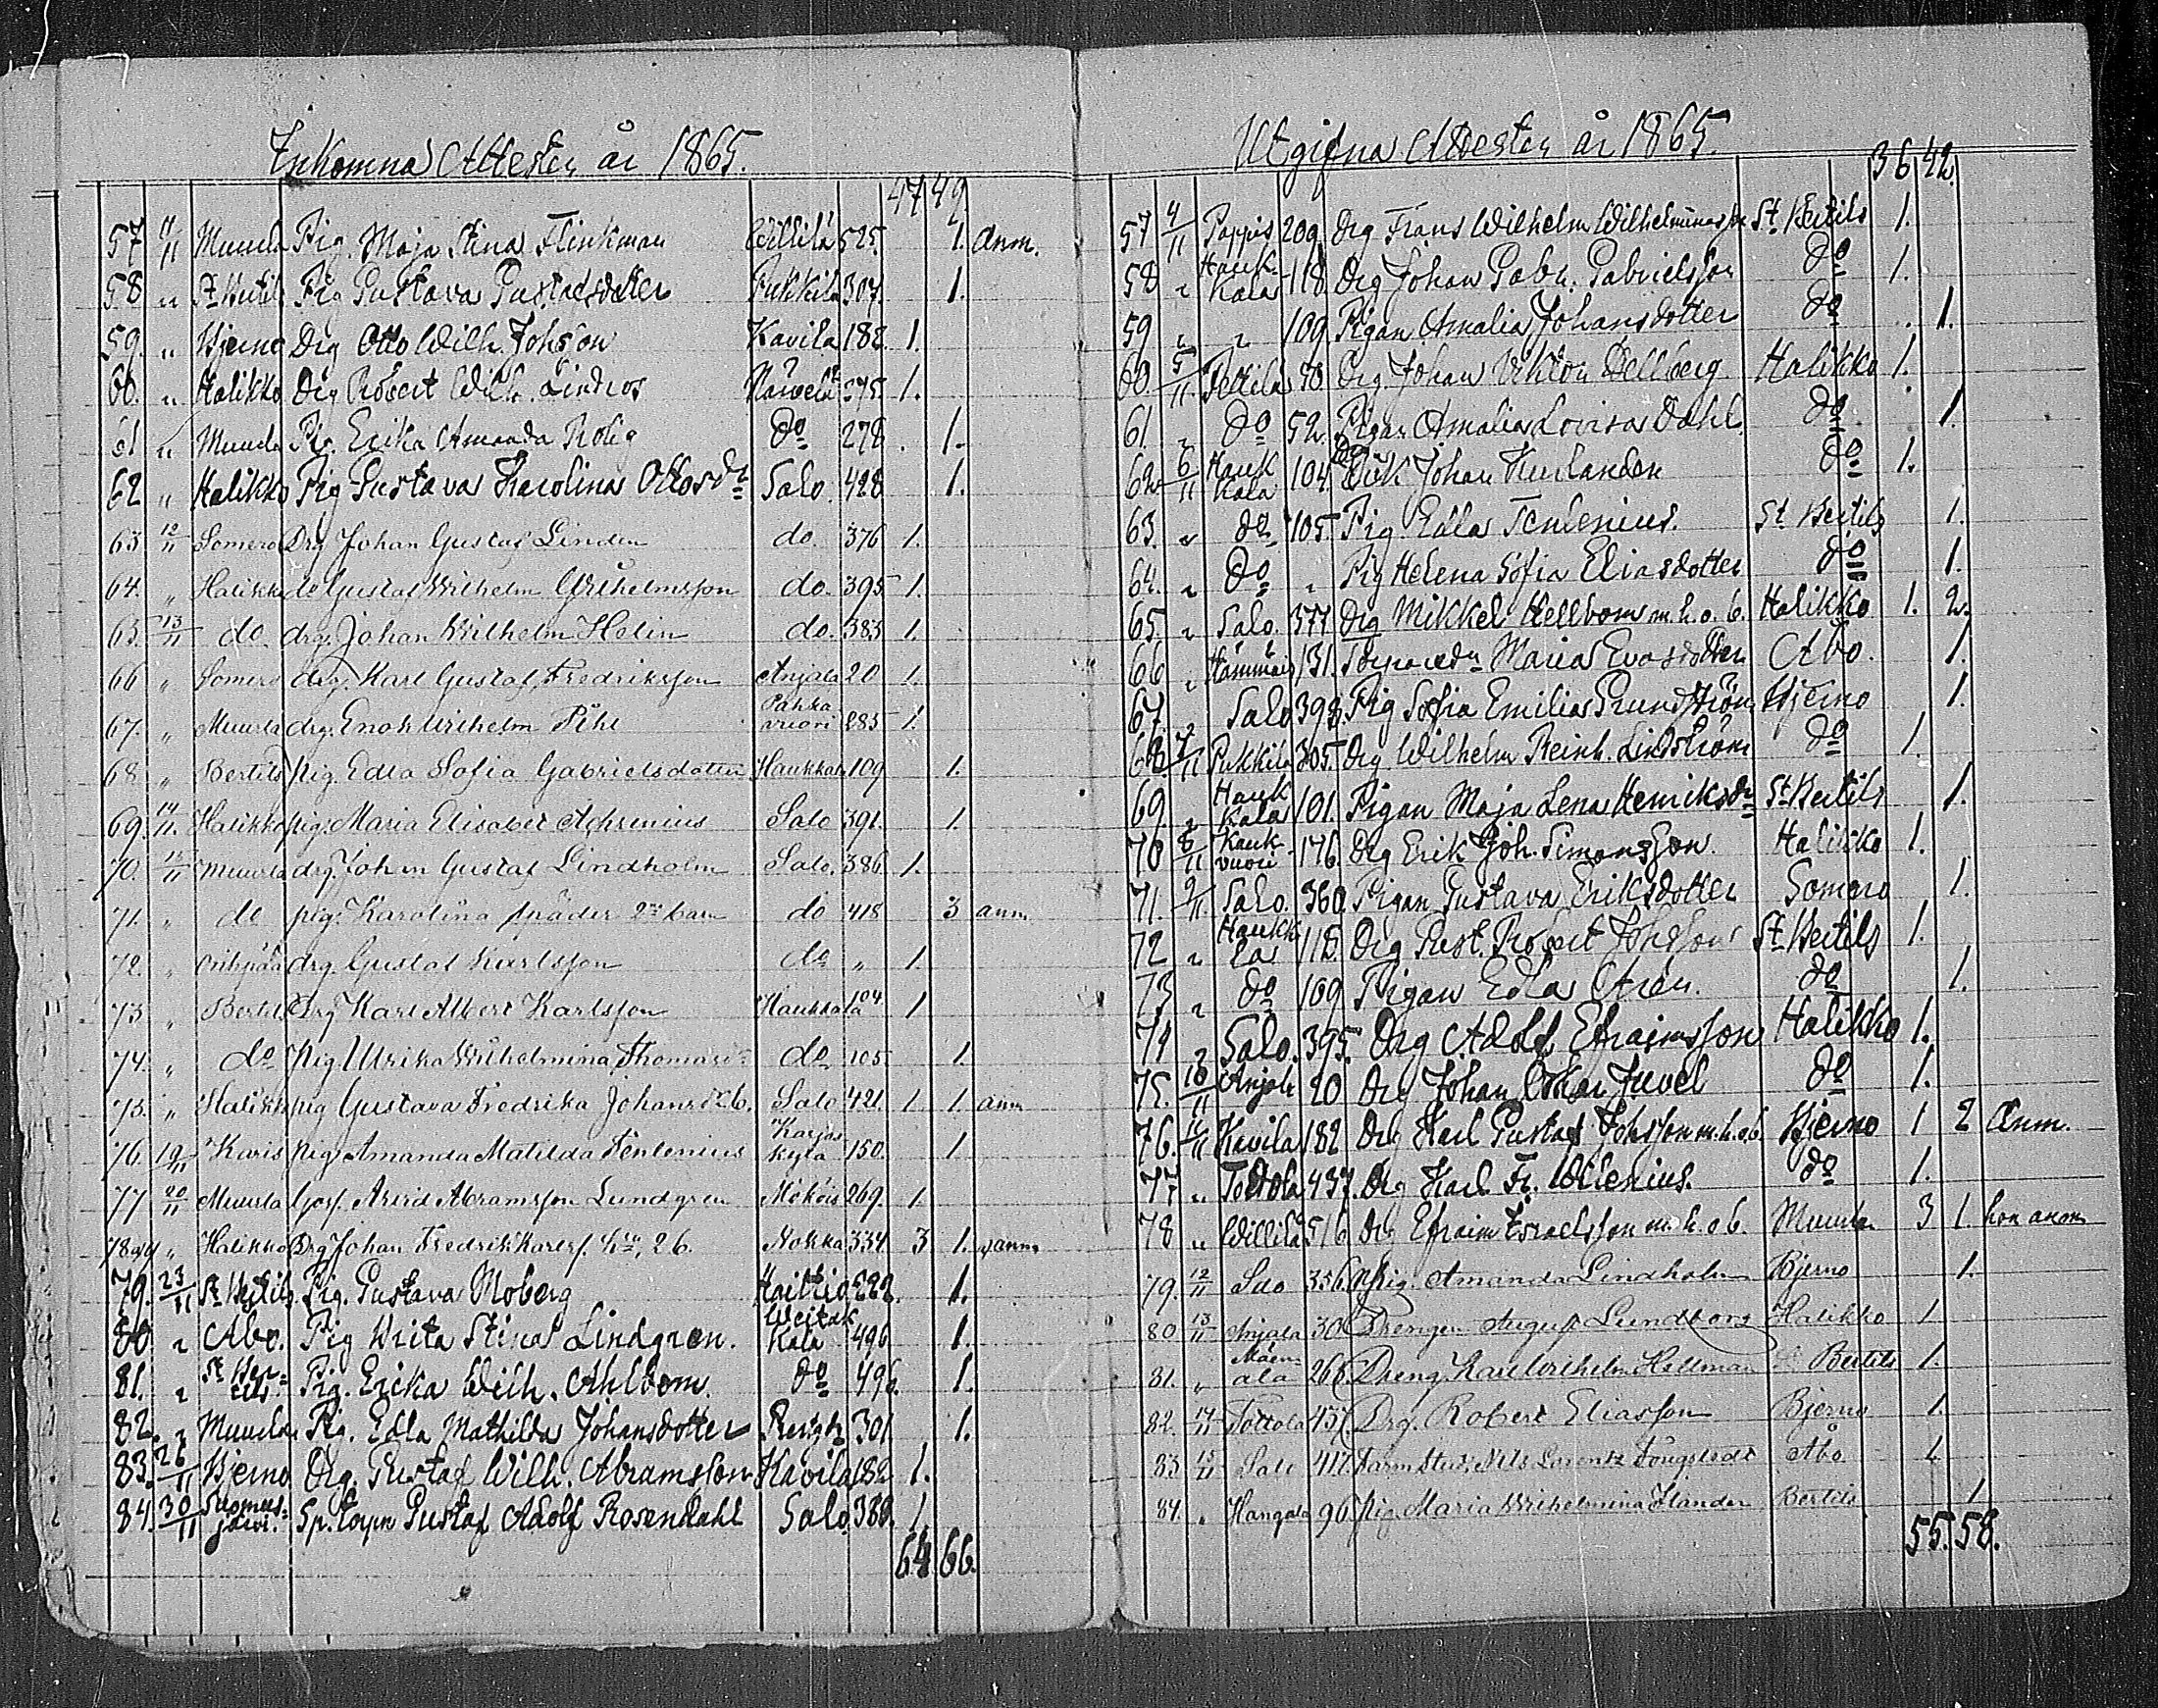 Inkomna Attester år 1865.
47 49.
57 11/11 Muurla Pig. Maja Stina Flinkman Willilä 525. 1. Anm.
58 " St Bertils Pig Gustava Gustafsdotter Pukkila 307. 1.
59. " Bjerno Drg Otto Wilh. Johsson Kavila 182. 1.
60. " Halikko Drg Robert Wilh. Lindros 275. 1.
61 " Muurla Pig. Erika Amanda Rolig do 278. 1.
62 " Halikko Pig Gustava Karolina Ottosdr Salo. 428 1.
63 12/11 Somero Drg Johan Gustaf Linden do. 376 1.
64. " Halikko do Gustaf Wilhelm Wilhelmsson do. 395 1.
65. 13/11 do. drg. Johan Wilhelm Helin do. 383 1.
66 " Somero drg. Karl Gustaf Fredriksson Anjala 20 1.
67. " Muurla drg. Enoh Wilhelm Pihl Pahkavuori 285 1.
68 " Bertils pig. Edla Sofia Gabrielsdotter Haukkala 109 1.
69. 14/11. Halikko pig. Maria Elisabet Achrenius Salo 391. 1.
70. 15/11 Muurla drg. Johan Gustaf Lindholm Salo. 386 1.
71. " do pig. Karolina 2ne barn do 418 3 anm
72. " drg. Gustaf Karlsson do " 1.
73. " Bertils Drg Karl Albert Karlsson Haukkala 104. 1
74. " do Pig Ulrika Wilhelmina Thomasdr do 105 1.
75. " Halikko pig Gustava Fredrika Johansdr b. Salo 421. 1 1. anm
76. 19/11 Karis pig Amanda Matilda Fenlenius Karjaskylä 150. 1
77 20/11 Muurla Arvid Abramsson Lundgren Mökois 269. 1.
78 " Halikko Drg Johan Fredrik Karlss. 2 b. Nokka 334 3 1. anm
79. 23/11 St Bertils. Pig. Gustava Moberg 222. 1.
80 " Åbo. Pig Writa Stina Lindgren. Weitakkala 496 1.
81. " St Bertils. Pig. Erika Wilh. Ahlbom. do 496. 1.
82. " Muurla Pig. Edla Mathilda Johansdotter 301 1.
83. 26/11 Bjerno Drg. Gustaf Wilh. Abramsson Kavila 182 1.
84. 30/11 Suomusjärvi. Sp. torpn Gustaf Adolf Rosendahl Salo. 380. 1.
64 66.
Utgifna Attester år 1865.
36 42.
57 4/11 Pappis 209. Drg Frans Wilhelm Wilhelminasson St Bertils 1.
58 " Haukkala 118. Drg Johan Gabr. Gabrielsson do 1.
59 " " 109 Pigan Amalia Johansdotter do 1.
60 5/11 Pettilä 50. Drg. Johan Viktor Dellberg Halikko 1.
61. " do 52. Pigan Amalia Lovisa Dahl. do. 1.
62 6/11 Haukkala 104. Erik Johan Kurlanden do. 1.
63. " do. 105. Pig. Edla Fenlenius. St Bertils 1.
64. " do " Pig Helena Sofia Eliasdotter do 1.
65. " Salo. 377 Drg Mikkel Hellbom m. h. o. b. Halikko 1. 2.
66 " 131. Maria Evasdotter Åbo. 1.
67. " Salo 398. Pig Sofia Emilia Grundström Bjerno 1.
68. 7/11 Pukkila 305. Drg. Wilhelm Reinh. Lindström do 1.
69. " Haukkala 101. Pigan Maja Lena Henriksdr St Bertils 1.
70 8/11 176. Drg Erik Joh. Simonsson. Halikko 1.
71. 9/11. Salo. 360. Pigan Gustava Eriksdotter Somero 1.
72 " Haukkala 115. Drg Gust. Robert Johsson St Bertils 1.
73 " do 109 Pigan Edla Aren. do 1.
74 " Salo. 395. Drg Adolf Efraimsson Halikko 1.
75. 10/11 Anjala 20 Drg Johan Oskar Juvel do 1.
76. 11/11 Kavila 182 Drg Karl Gustaf Johsson m. h. o. b. Bjerno 1 2 Anm.
77. " Tottola 437. Drg Karl Fr. Wilenius. do 1.
78 " Willilä 516 Drg Efraim Israelsson m. h. o b. Muurla 3 1.
79. 12/11 Salo 356. Pig. Amanda Lindholm Bjerno 1.
80 13/11 Anjala 30. Drengen August Lundfors Halikko 1
81. " 266. Dreng. Karl Wilhelm Hellman St Bertils 1.
82. 14/11 Tottola 437. Drg. Robert Eliasson Bjerno 1.
83 15/11 Salo 417. Nils Lorentz Åbo 1
84. " Hangala 96 pig. Maria Wilhelmina Flander Bertils 1
55. 58.